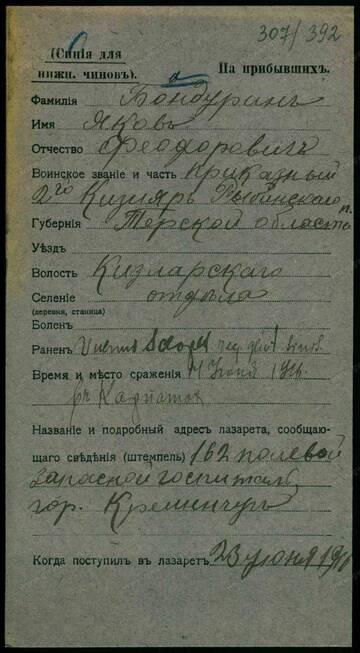 307/392
(Синія для
нижн. чиновъ).
На прибывшихъ.
Фамилія Бондуринъ
Имя Яковъ
Отчество Феодоровичъ
Воинское званіе и часть приказный
2го Кизляръ п.
Губернія Терской области
Уѣздъ
Волость Кизлярскаго
Селеніе отдѣла
(деревня, станица)
Боленъ
Раненъ Vulnus Sclopet
Время и мѣсто сраженія 4 Іюня 1916.
Названіе и подробный адресъ лазарета, сообщаю-
щаго свѣдѣнія (штемпель) 162 полевой
запасной госпиталь
гор. Кременчугъ
Когда поступилъ въ лазаретъ 23 іюня 1916